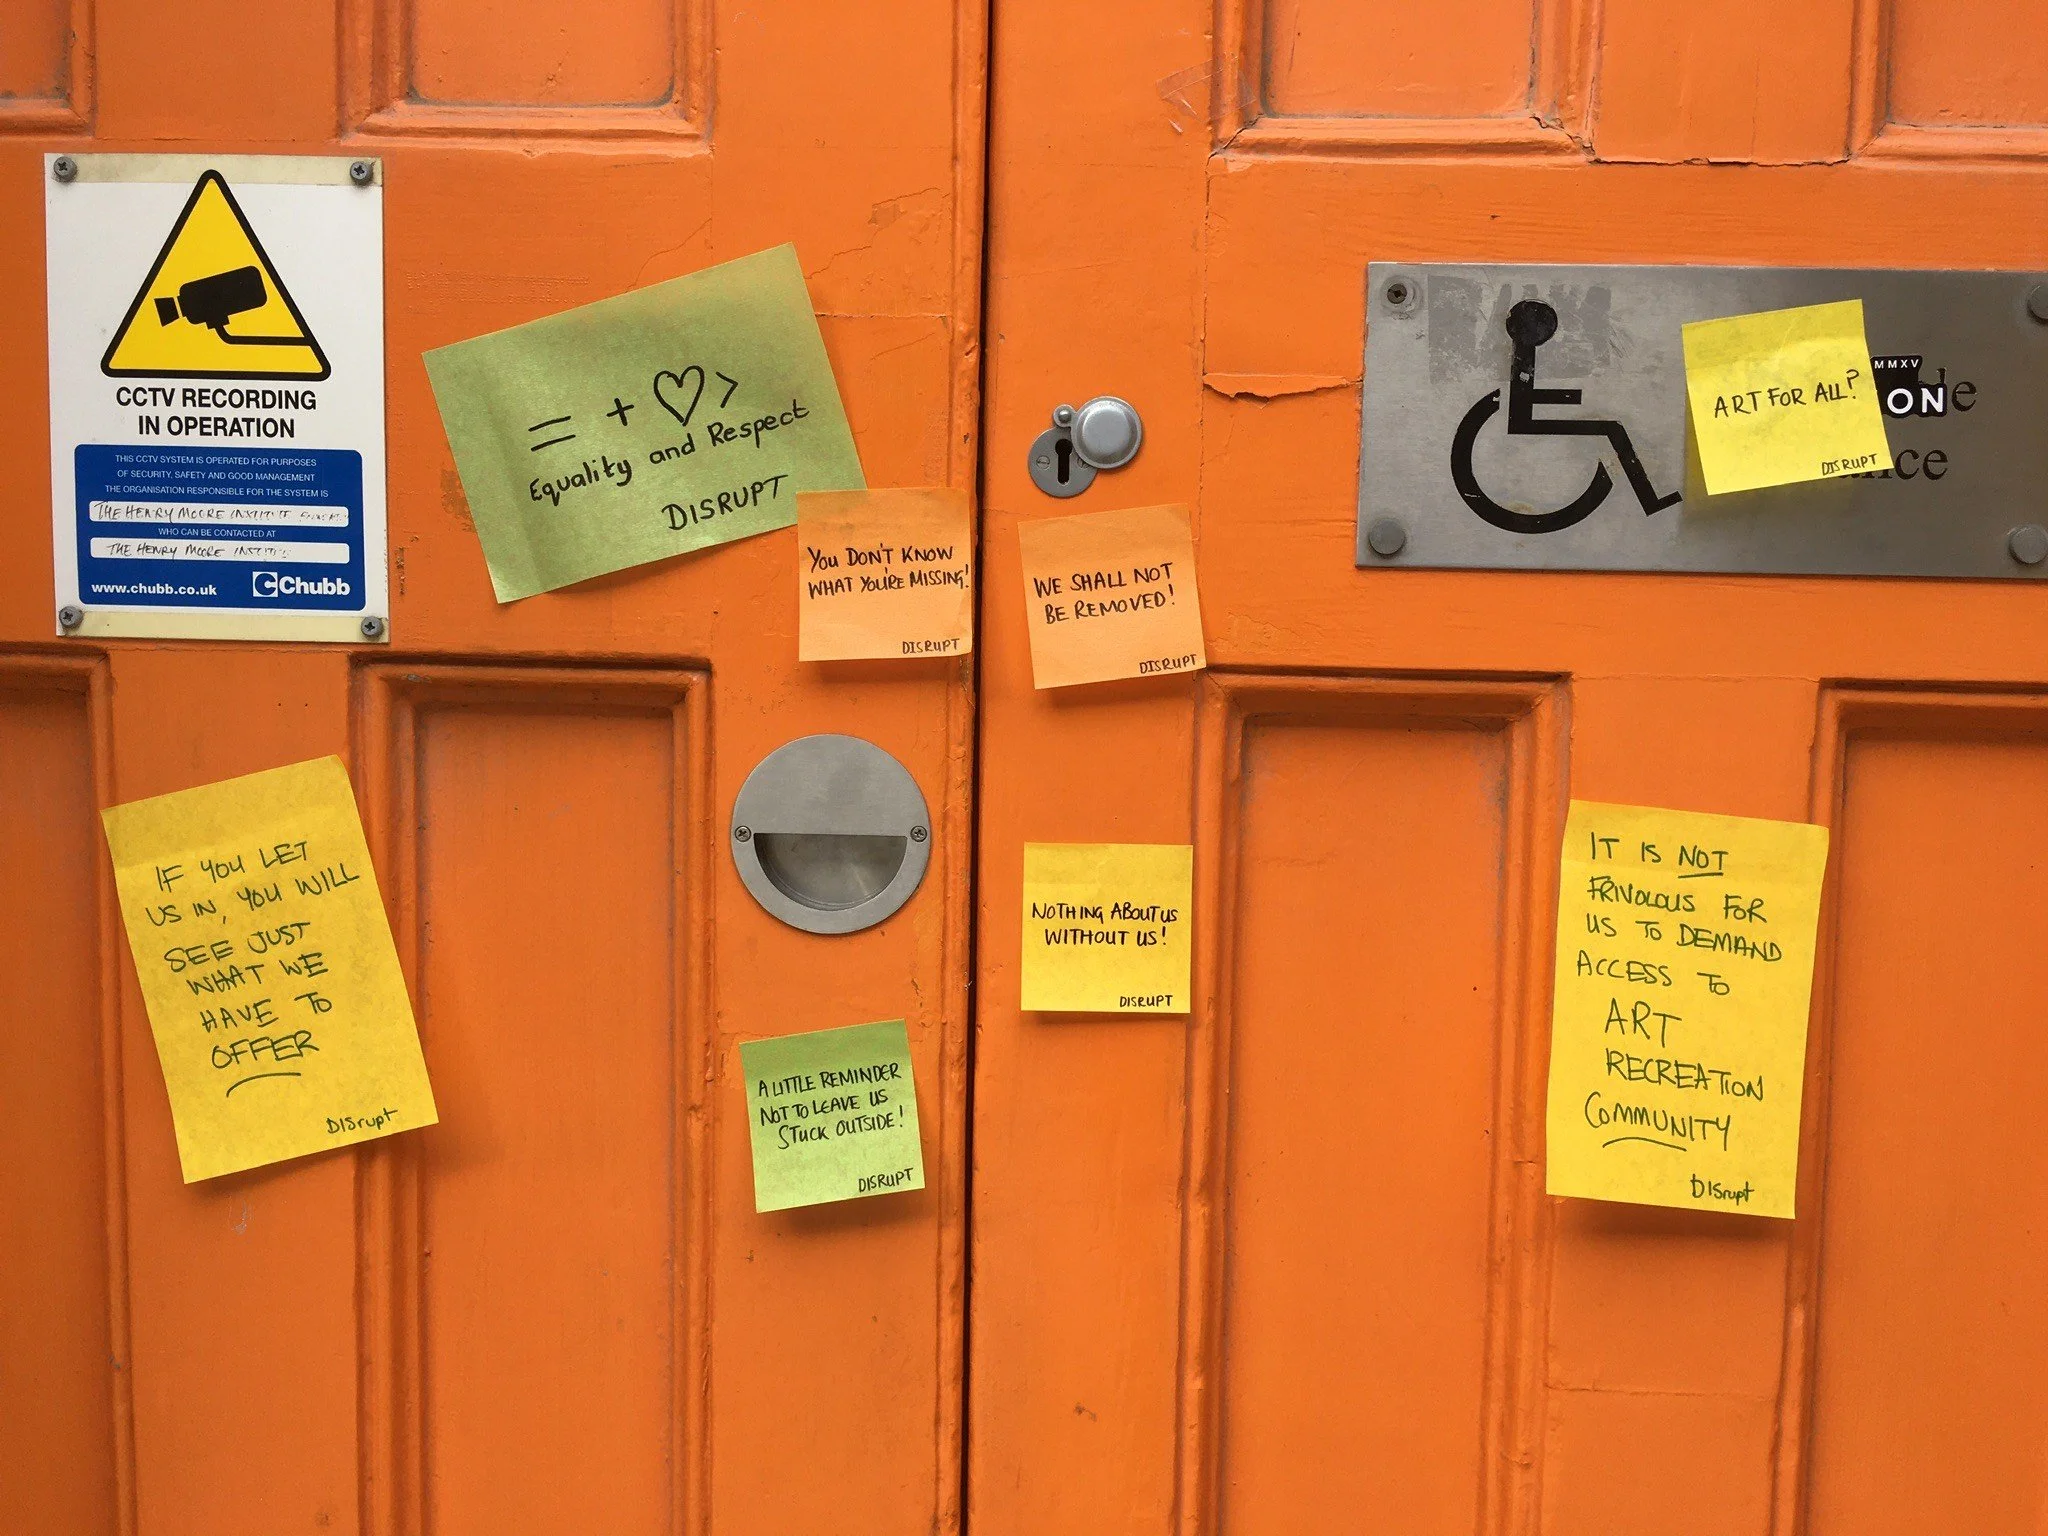 CCTV RECORDING
IN OPERATION
THIS CCTV SYSTEM IS OPERATED FOR PURPOSES
OF SECURITY, SAFETY AND GOOD MANAGEMENT
THE ORGANISATION RESPONSIBLE FOR THE SYSTEM IS
THE HENRY MOORE INSTITUTE
WHO CAN BE CONTACTED AT
THE HENRY MOORE
www.chubb.co.uk
Chubb
= + ♡>
Equality and Respect
DISRUPT
YOU DON'T KNOW
WHAT YOU'RE MISSING!
DISRUPT
WE SHALL NOT
BE REMOVED!
DISRUPT
ART FOR ALL?
DISRUPT
MMXV
ON
IF YOU LET
US IN, YOU WILL
SEE JUST
WHAT WE
HAVE TO
OFFER
DISrupt
A LITTLE REMINDER
NOT TO LEAVE US
STUCK OUTSIDE!
DISRUPT
NOTHING ABOUT US
WITHOUT US!
DISRUPT
IT IS NOT
FRIVOLOUS FOR
US TO DEMAND
ACCESS TO
ART
RECREATION
COMMUNITY
DISrupt